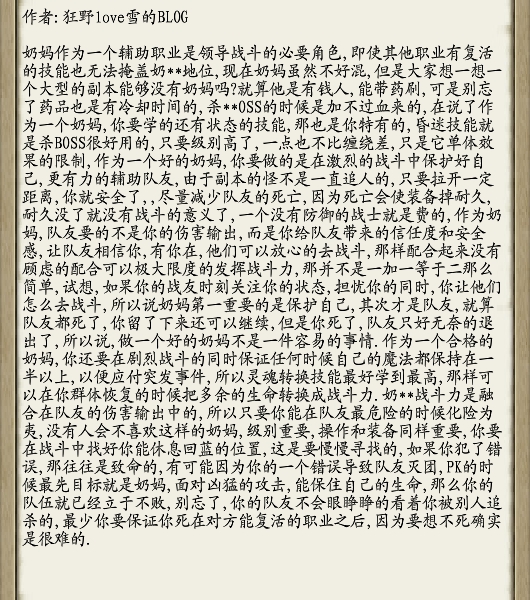 作者:狂野love雪的BLOG
奶妈作为一个辅助职业是领导战斗的必要角色,即使其他职业有复活
的技能也无法掩盖奶**地位,现在奶妈虽然不好混,但是大家想一想一
个大型的副本能够没有奶妈吗?就算他是有钱人,能带药刷,可是别忘
了药品也是有冷却时间的,杀**OSS的时候是加不过血来的,在说了作
为一个奶妈,你要学的还有状态的技能,那也是你特有的,昏迷技能就
是杀BOSS很好用的,只要级别高了,一点也不比缠绕差,只是它单体效
果的限制,作为一个好的奶妈,你要做的是在激烈的战斗中保护好自
己,更有力的辅助队友,由于副本的怪不是一直追人的,只要拉开一定
距离,你就安全了,,尽量减少队友的死亡,因为死亡会使装备掉耐久,
耐久没了就没有战斗的意义了,一个没有防御的战士就是费的,作为奶
妈,队友要的不是你的伤害输出,而是你给队友带来的信任度和安全
感,让队友相信你,有你在,他们可以放心的去战斗,那样配合起来没有
顾虑的配合可以极大限度的发挥战斗力,那并不是一加一等于二那么
简单,试想,如果你的战友时刻关注你的状态,担忧你的同时,你让他们
怎么去战斗,所以说奶妈第一重要的是保护自己,其次才是队友,就算
队友都死了,你留了下来还可以继续,但是你死了,队友只好无奈的退
出了,所以说,做一个好的奶妈不是一件容易的事情.作为一个合格的
奶妈,你还要在剧烈战斗的同时保证任何时候自己的魔法都保持在一
半以上,以便应付突发事件,所以灵魂转换技能最好学到最高,那样可
以在你群体恢复的时候把多余的生命转换成战斗力.奶**战斗力是融
合在队友的伤害输出中的,所以只要你能在队友最危险的时候化险为
夷,没有人会不喜欢这样的奶妈,级别重要,操作和装备同样重要,你要
在战斗中找好你能休息回蓝的位置,这是要慢慢寻找的,如果你犯了错
误,那往往是致命的,有可能因为你的一个错误导致队友灭团,PK的时
候最先目标就是奶妈,面对凶猛的攻击,能保住自己的生命,那么你的
队伍就已经立于不败,别忘了,你的队友不会眼睁睁的看着你被别人追
杀的,最少你要保证你死在对方能复活的职业之后,因为要想不死确实
是很难的.